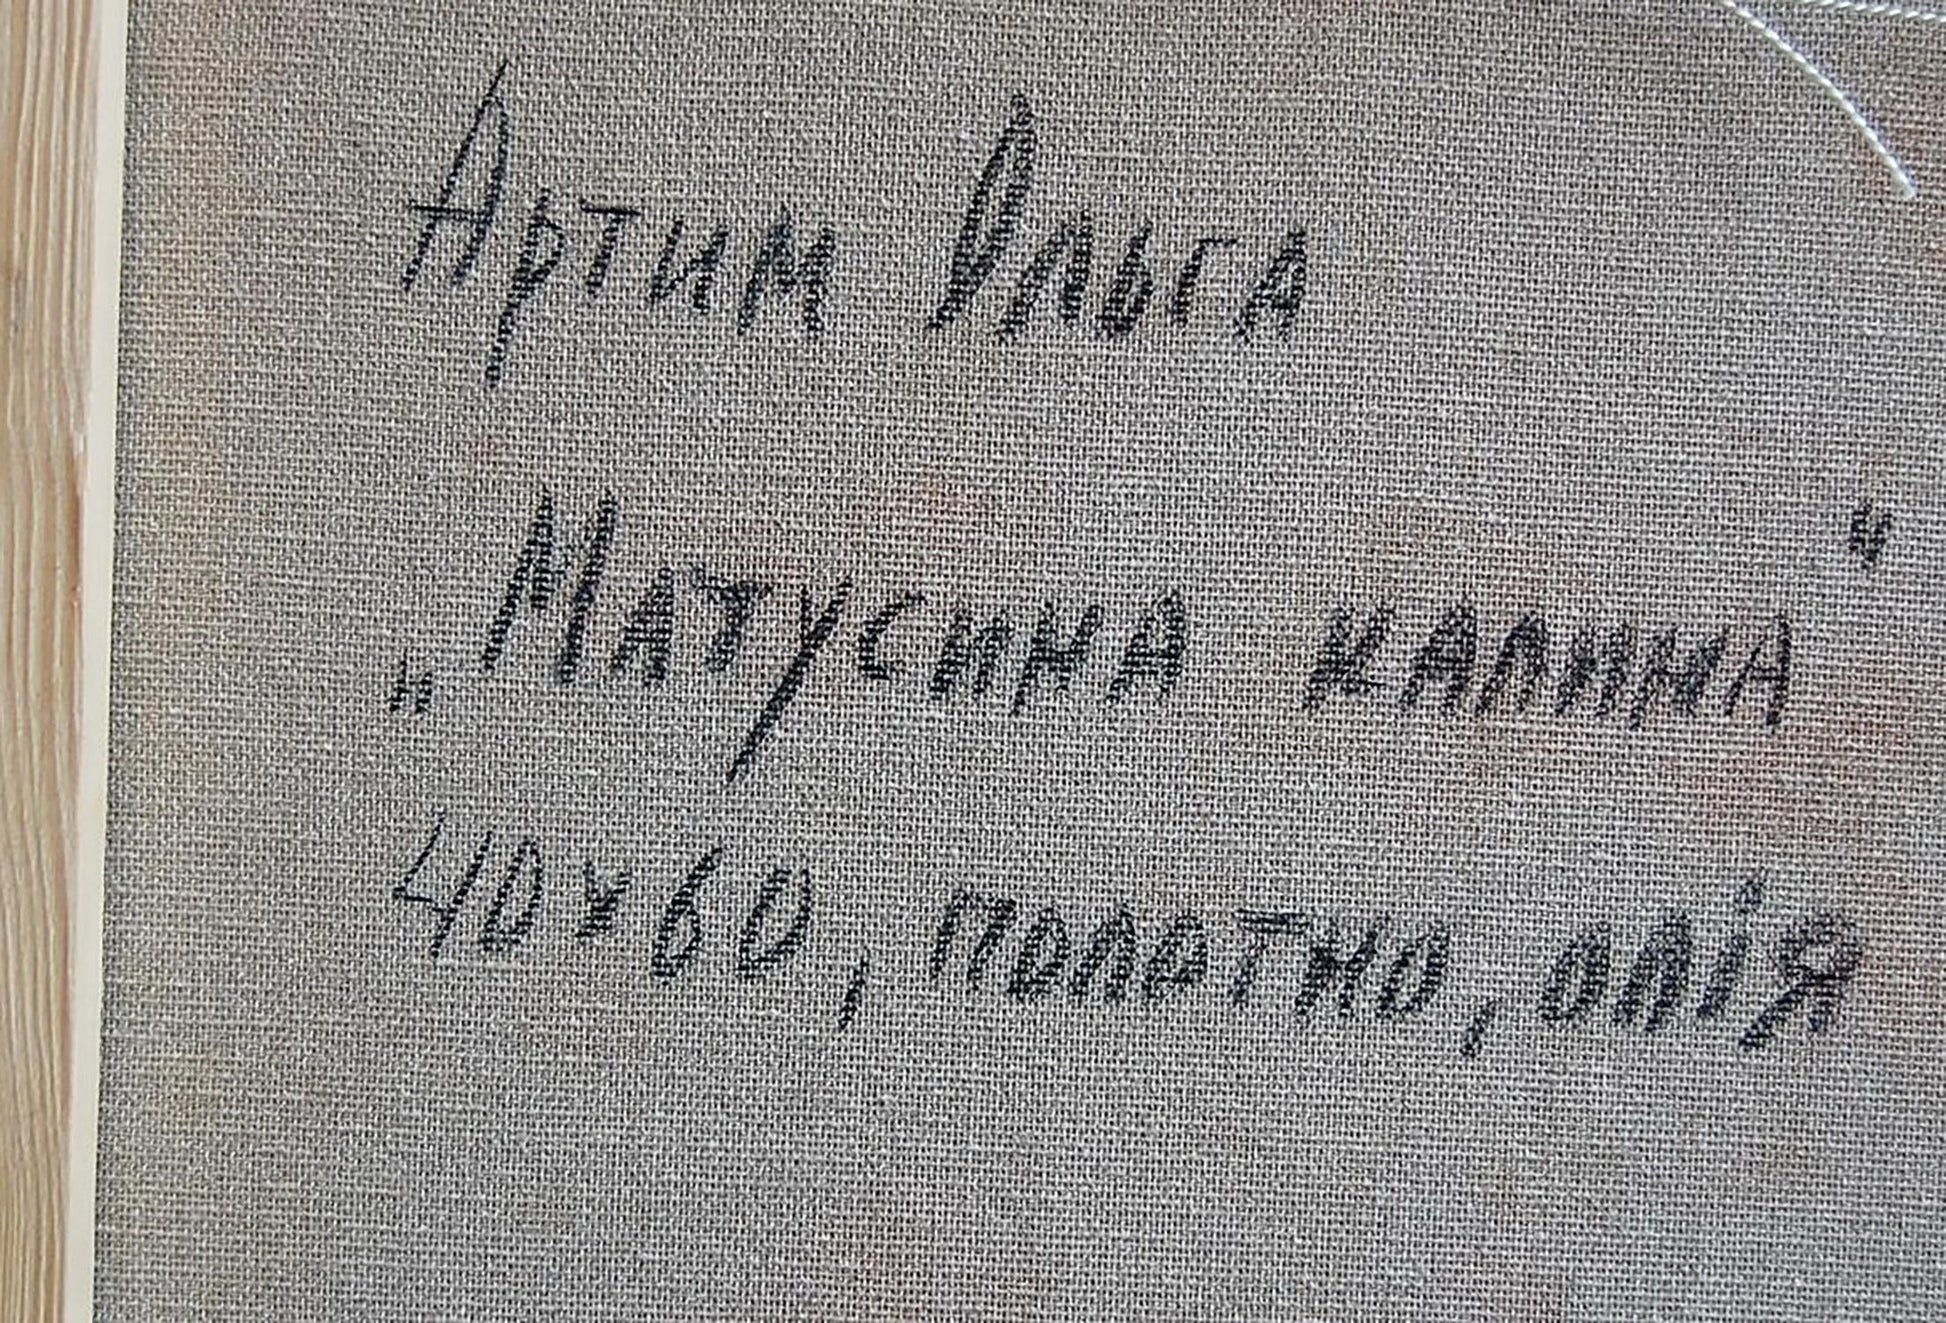 Артим Ольга
„Матусина калина“
40×60, полотно, олія